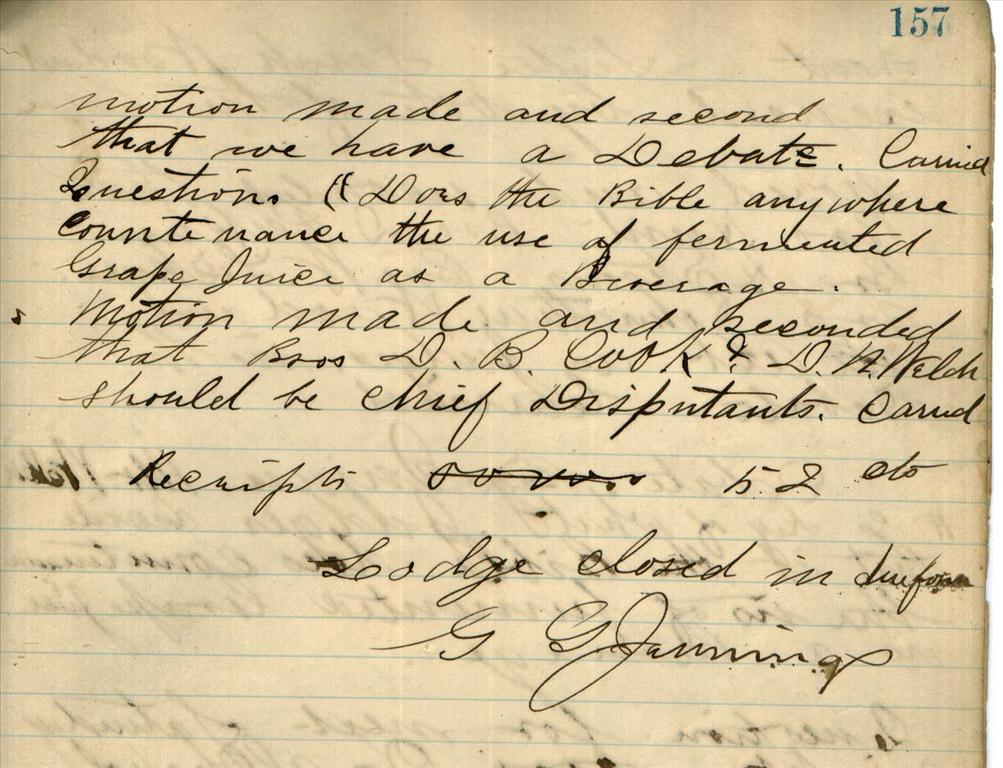 157
motion made and second
that we have a Debate. Carried
Question. "Does the Bible anywhere
countenance the use of fermented
Grape Juice as a Beverage.
Motion made and seconded
that Bros D. B. Cook & D. N. Welch
should be chief Disputants. Carried
Receipts 52 cts
Lodge closed in due form
G G Jennings